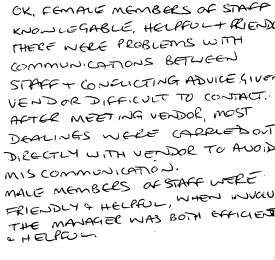 OK. FEMALE MEMBERS OF STAFF
KNOWLEGABLE, HELPFUL + FRIEND
THERE WERE PROBLEMS WITH
COMMUNICATIONS BETWEEN
STAFF + CONFLICTING ADVICE GIVEN
VENDOR DIFFICULT TO CONTACT.
AFTER MEETING VENDOR, MOST
DEALINGS WERE CARRIED OUT
DIRECTLY WITH VENDOR TO AVOID
MISCOMMUNICATION.
MALE MEMBERS OF STAFF WERE
FRIENDLY + HELPFUL, WHEN INVOLV
THE MANAGER WAS BOTH EFFICIEN
& HELPFUL.